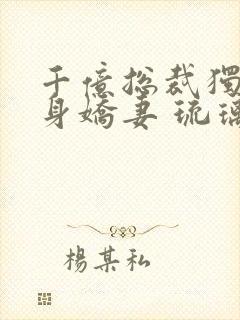 千億總裁獨
身嬌妻 琉璃
楊某私